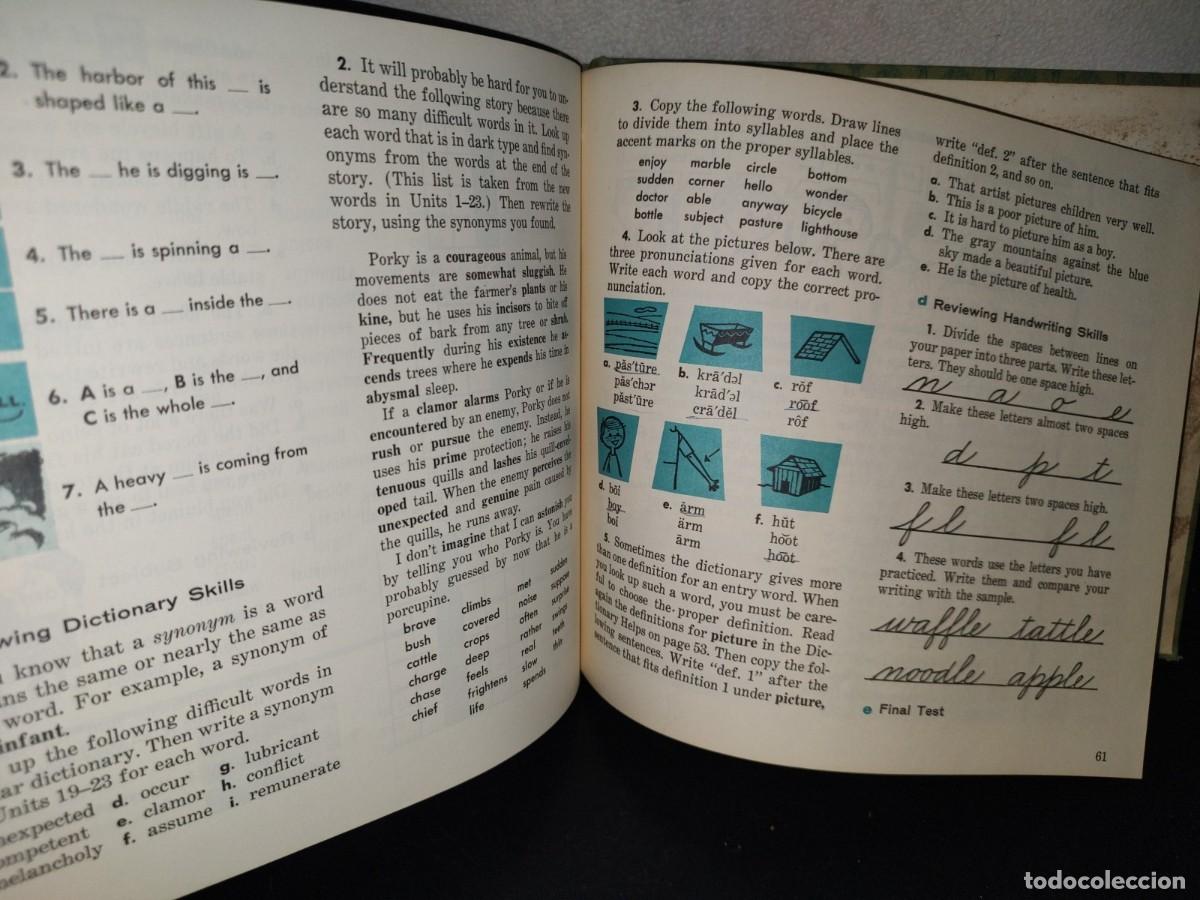 2. The harbor of this __ is
shaped like a __.
3. The __ he is digging is __.
4. The __ is spinning a __.
5. There is a __ inside the __.
6. A is a __, B is the __, and
C is the whole __.
7. A heavy __ is coming from
the __.
LL.
wing Dictionary Skills
know that a synonym is a word
ns the same or nearly the same as
word. For example, a synonym of
infant.
up the following difficult words in
ar dictionary. Then write a synonym
Units 19–23 for each word.
nexpected d. occur g. lubricant
ompetent e. clamor h. conflict
melancholy f. assume i. remunerate
2. It will probably be hard for you to un-
derstand the following story because there
are so many difficult words in it. Look up
each word that is in dark type and find syn-
onyms from the words at the end of the
story. (This list is taken from the new
words in Units 1–23.) Then rewrite the
story, using the synonyms you found.
Porky is a courageous animal, but his
movements are somewhat sluggish. He
does not eat the farmer's plants or his
kine, but he uses his incisors to bite off
pieces of bark from any tree or shrub.
Frequently during his existence he as-
cends trees where he expends his time in
abysmal sleep.
If a clamor alarms Porky or if he is
encountered by an enemy, Porky does not
rush or pursue the enemy. Instead, he
uses his prime protection; he raises his
tenuous quills and lashes his quill-envel-
oped tail. When the enemy perceives the
unexpected and genuine pain caused by
the quills, he runs away.
I don't imagine that I can astonish you
by telling you who Porky is. You have
probably guessed by now that he is a
porcupine.
brave climbs met sudden
bush covered noise suppose
cattle crops often surprise
charge deep rather swings
chase feels real teeth
chief frightens slow thin
life spends
3. Copy the following words. Draw lines
to divide them into syllables and place the
accent marks on the proper syllables.
enjoy marble circle bottom
sudden corner hello wonder
doctor able anyway bicycle
bottle subject pasture lighthouse
4. Look at the pictures below. There are
three pronunciations given for each word.
Write each word and copy the correct pro-
nunciation.
a. păs'tūre b. krā'dəl c. rŏf
păs'chər krād'əl roof
păst'ūre crā'dĕl rôf
d. bŏi e. ărm f. hŭt
boy ärm hŏot
boi ārm hoot
5. Sometimes the dictionary gives more
than one definition for an entry word. When
you look up such a word, you must be care-
ful to choose the proper definition. Read
again the definitions for picture in the Dic-
tionary Helps on page 53. Then copy the fol-
lowing sentences. Write "def. 1" after the
sentence that fits definition 1 under picture,
write "def. 2" after the sentence that fits
definition 2, and so on.
a. That artist pictures children very well.
b. This is a poor picture of him.
c. It is hard to picture him as a boy.
d. The gray mountains against the blue
sky made a beautiful picture.
e. He is the picture of health.
d Reviewing Handwriting Skills
1. Divide the spaces between lines on
your paper into three parts. Write these let-
ters. They should be one space high.
n a o e
2. Make these letters almost two spaces
high.
d p t
3. Make these letters two spaces high.
f l f l
4. These words use the letters you have
practiced. Write them and compare your
writing with the sample.
waffle tattle
noodle apple
e Final Test
61
todocoleccion